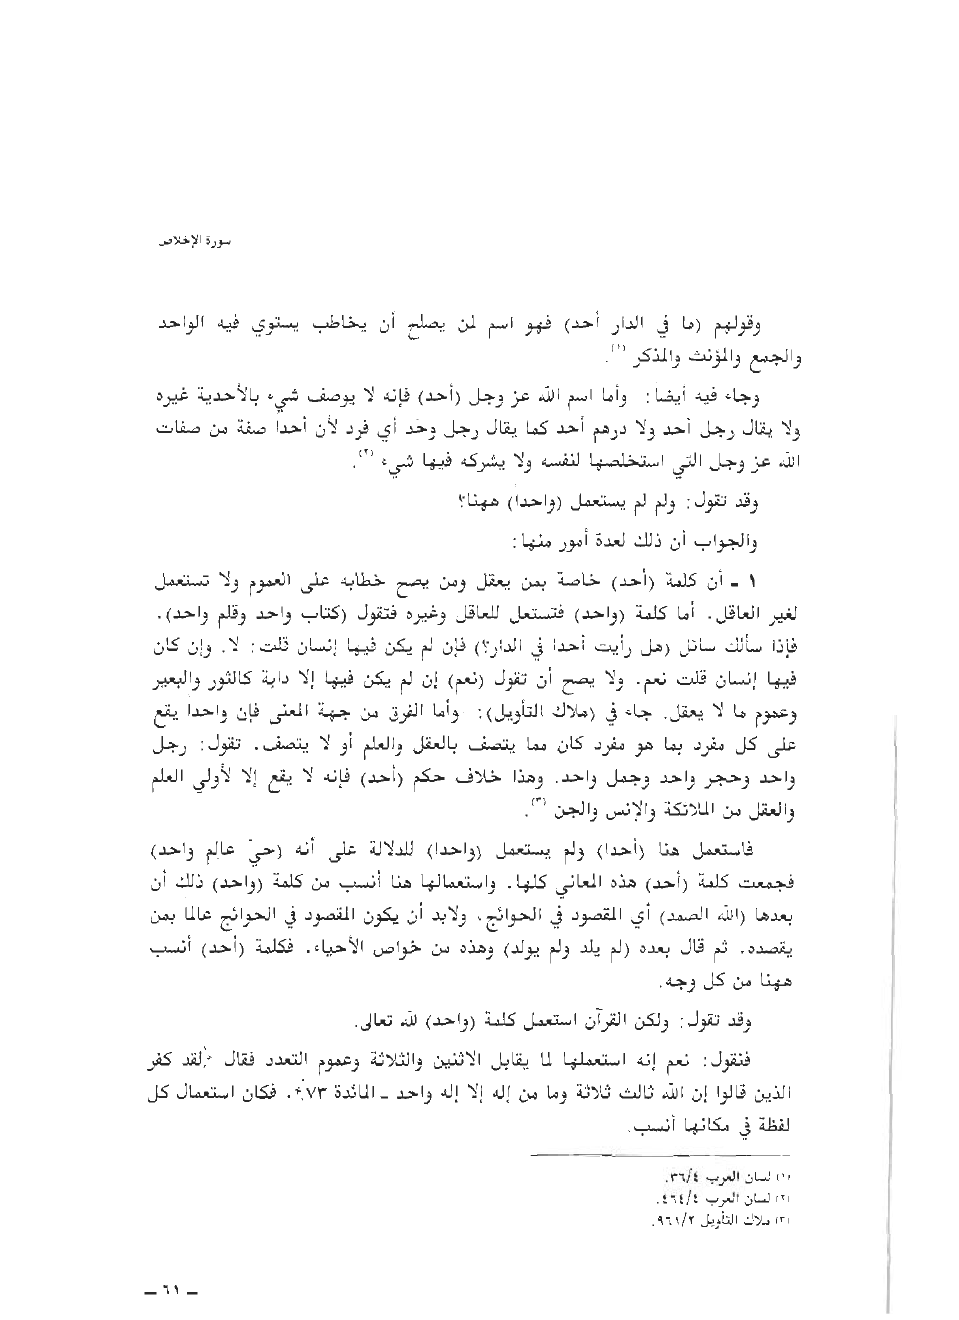 سورة الإخلاص
وقولهم (ما في الدار أحد) فهو اسم لمن يصلح أن يخاطب يستوي فيه الواحد
والجمع والمؤنث والمذكر (١).
وجاء فيه أيضاً: وأما اسم الله عز وجل (أحد) فإنه لا يوصف شيء بالأحدية غيره
ولا يقال رجل أحد ولا درهم أحد كما يقال رجل وحَد أي فرد لأن أحداً صفة من صفات
الله عز وجل التي استخلصها لنفسه ولا يشركه فيها شيء (٢).
وقد تقول: ولم لم يستعمل (واحداً) ههنا؟
والجواب أن ذلك لعدة أمور منها:
١ ـ أن كلمة (أحد) خاصة بمن يعقل ومن يصح خطابه على العموم ولا تستعمل
لغير العاقل. أما كلمة (واحد) فتستعل للعاقل وغيره فتقول (كتاب واحد وقلم واحد).
فإذا سألك سائل (هل رأيت أحدا في الدار؟) فإن لم يكن فيها إنسان قلت: لا. وإن كان
فيها إنسان قلت نعم. ولا يصح أن تقول (نعم) إن لم يكن فيها إلا دابة كالثور والبعير
وعموم ما لا يعقل. جاء في (ملاك التأويل): وأما الفرق من جهة المعنى فإن واحداً يقع
على كل مفرد بما هو مفرد كان مما يتصف بالعقل والعلم أو لا يتصف. تقول: رجل
واحد وحجر واحد وجمل واحد. وهذا خلاف حكم (أحد) فإنه لا يقع إلا لأولي العلم
والعقل من الملائكة والإنس والجن (٣).
فاستعمل هنا (أحدا) ولم يستعمل (واحدا) للدلالة على أنه (حيّ عالم واحد)
فجمعت كلمة (أحد) هذه المعاني كلها. واستعمالها هنا أنسب من كلمة (واحد) ذلك أن
بعدها (الله الصمد) أي المقصود في الحوائج، ولابد أن يكون المقصود في الحوائج عالما بمن
يقصده. ثم قال بعده (لم يلد ولم يولد) وهذه من خواص الأحياء. فكلمة (أحد) أنسب
ههنا من كل وجه.
وقد تقول: ولكن القرآن استعمل كلمة (واحد) لله تعالى.
فنقول: نعم إنه استعملها لما يقابل الاثنين والثلاثة وعموم التعدد فقال ﴿لقد كفر
الذين قالوا إن الله ثالث ثلاثة وما من إله إلا إله واحد ـ المائدة ٧٣﴾. فكان استعمال كل
لفظة في مكانها أنسب.
(١) لسان العرب ٣٦/٤.
(٢) لسان العرب ٤٦٤/٤.
(٣) ملاك التأويل ٩٦١/٢.
ـ ٦١ ـ